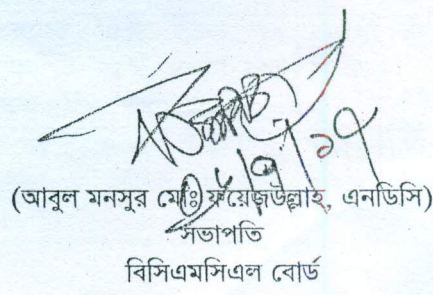 (আবুল মনসুর মোঃ ফয়েজউল্লাহ, এনডিসি)
সভাপতি
বিসিএমসিএল বোর্ড